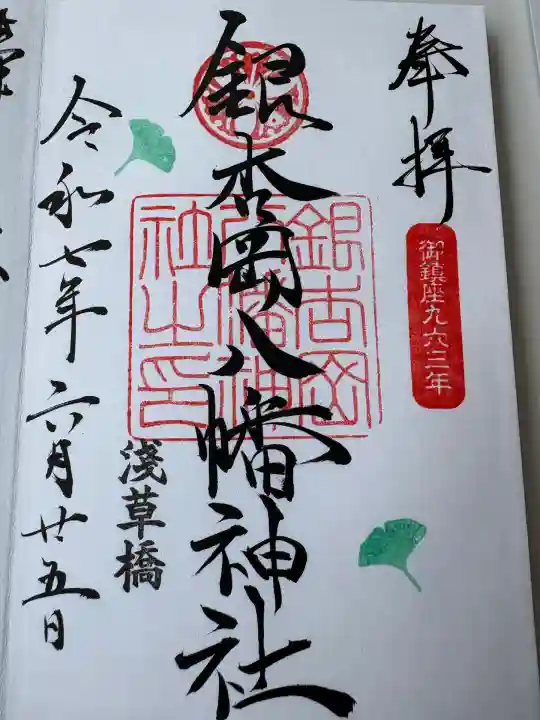 奉拝
御鎮座九六三年
銀杏岡八幡神社
銀杏岡
八幡神
社之印
淺草橋
令和七年六月廿五日